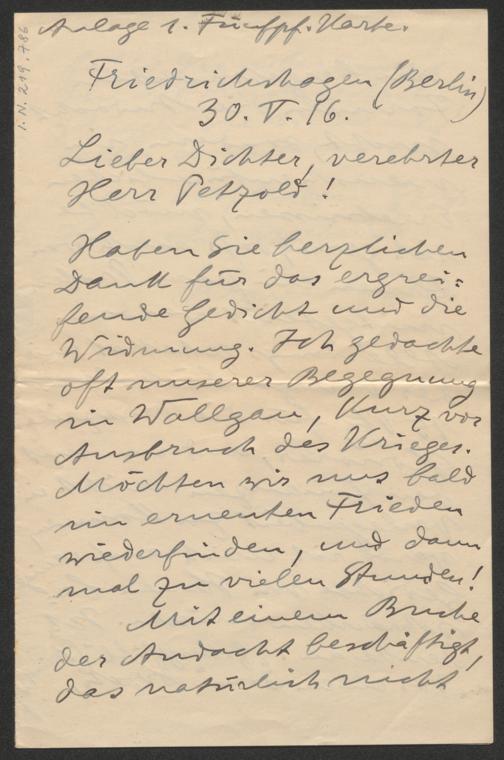 Anlage 1. Fünfpf. Karte.
I.N. 219.786
Friedrichshagen (Berlin)
30. V. 16.
Lieber Dichter, verehrter
Herr Petzold!
Haben Sie herzlichen
Dank für das ergrei-
fende Gedicht und die
Widmung. Ich gedachte
oft unserer Begegnung
in Wallgau, Kurz vor
Ausbruch des Krieges.
Möchten wir uns bald
im erneuten Frieden
wiederfinden, und dann
mal zu vielen Stunden!
Mit einem Buche
der Andacht beschäftigt,
das natürlich nicht